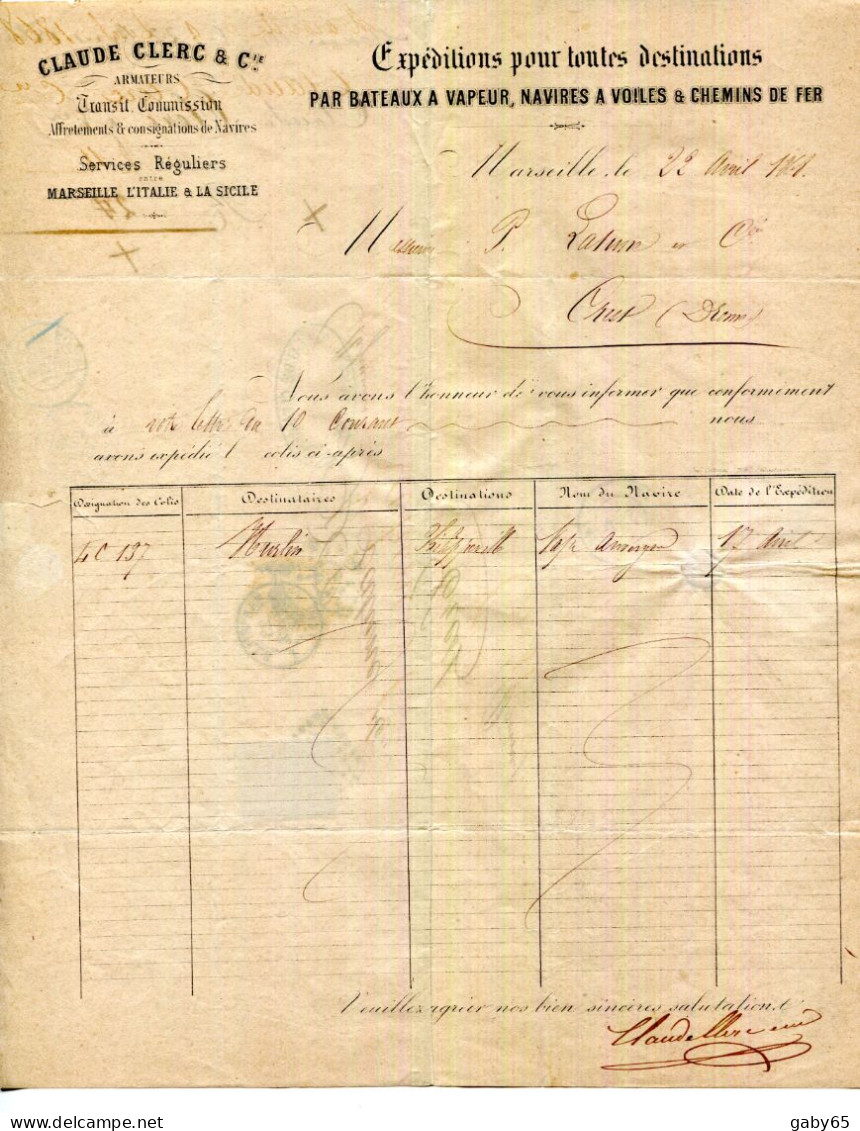 CLAUDE CLERC & CIE.
ARMATEURS
Transit, Commission
Affretements & consignations de Navires
Services Réguliers
entre
MARSEILLE L'ITALIE & LA SICILE
Expéditions pour toutes destinations
PAR BATEAUX A VAPEUR, NAVIRES A VOILES & CHEMINS DE FER
Marseille, le 22 Avril 1868
Messieurs P. Latune et Cie
Crest (Drome)
Nous avons l'honneur de vous informer que conformement
à votre lettre du 10 Courant nous
avons expédié l colis ci-après
Désignation des Colis Destinataires Destinations Nom du Navire Date de l'Expédition
4C 137 Philippeville Vap 17 Avril
Veuillez agréer nos bien sincères salutations
Claude Clerc
gaby65